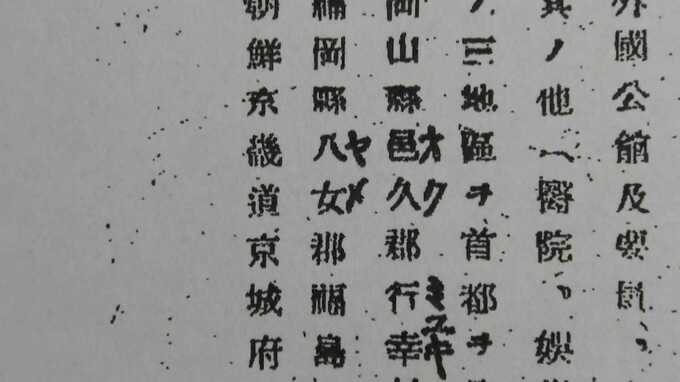 外國公館及要員、
其ノ他（醫院、娯
ノ三地區ヲ首都ヲ
岡山縣邑久郡行幸
オク ミユキ
福岡縣八女郡福島
ヤメ
朝鮮京畿道京城府